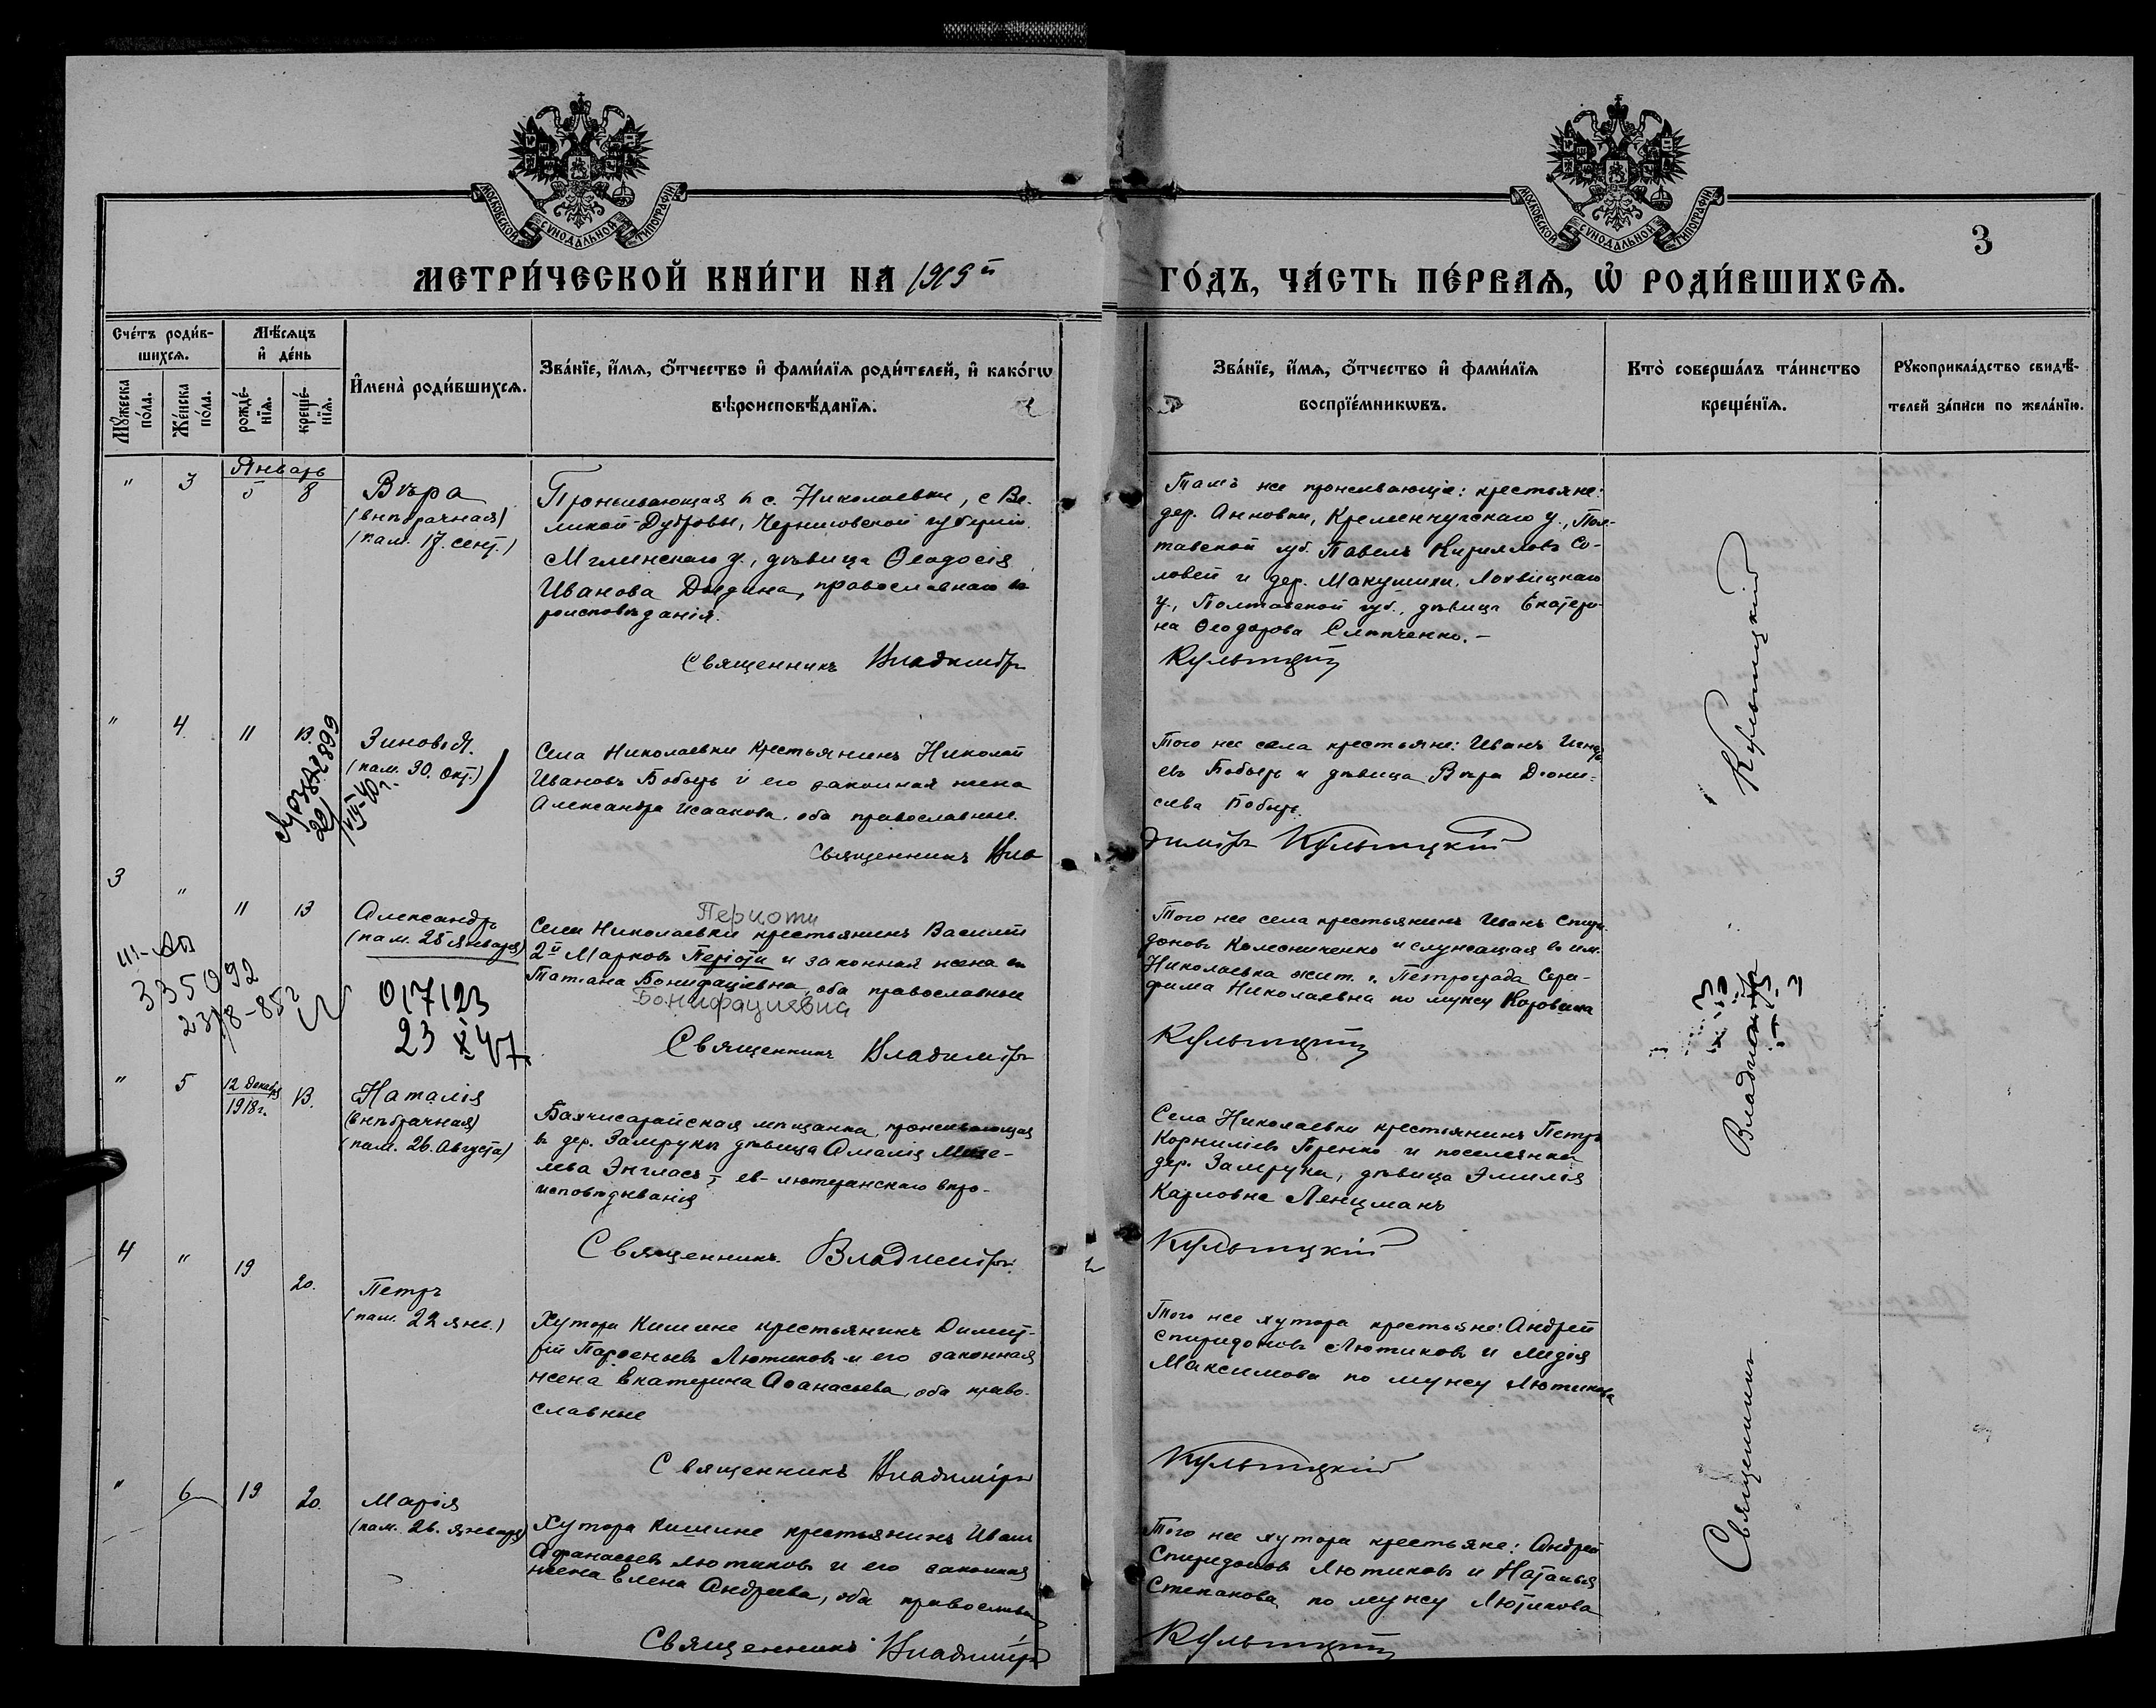 МОСКОВСКОЙ СУНОДАЛЬНОЙ ТИПОГРАФІИ
МОСКОВСКОЙ СУНОДАЛЬНОЙ ТИПОГРАФІИ
3
МЕТРИ́ЧЕСКОЙ КНИ́ГИ НА 1919й
ГО́ДЪ, ЧА́СТЬ ПЕ́РВАѦ, Ѡ҆ РОДИ́ВШИХСѦ.
Сче́тъ роди́в-
шихсѧ.
Мѣ́сѧцъ
и҆ де́нь
Мꙋ́жеска по́ла.
Же́нска по́ла.
рожде́-нїѧ.
креще́-нїѧ.
И҆мена̀ роди́вшихсѧ.
Зва́нїе, и҆́мѧ, ѻ҆́тчество и҆ фами́лїѧ роди́телей, и҆ како́гѡ
вѣроисповѣ́данїѧ.
Зва́нїе, и҆́мѧ, ѻ҆́тчество и҆ фами́лїѧ
воспрїе́мникѡвъ.
Кто̀ соверша́лъ та́инство
креще́нїѧ.
Рꙋкоприкла́дство свидѣ́-
телей за́писи по жела́нїю.
Январь
" 3 5 8
Вѣра
(внѣбрачная)
(пам. 17. сент.)
Проживающая в с. Николаевки, с Ве-
ликой-Дубровы, Черниговской губерніи
Мглинскаго у., дѣвица Ѳеодосія
Иванова Дидина, православнаго вѣ
роисповѣданія.
Священникъ Владиміръ
Тамъ же проживающіе: крестьяне:
дер. Анновки, Кременчугскаго у., Пол-
тавской губ. Павелъ Кирилловъ Со-
ловей и дер. Макушихи, Лохвицкаго
у., Полтавской губ., дѣвица Екатери-
на Ѳеодорова Слипченко.-
Культицкій
" 4 11 13.
Зиновія.
(пам. 30. Окт.)
Села Николаевки крестьянинъ Николай
Ивановъ Бобырь и его законная жена
Александра Исаакова, оба православные
Священникъ Вла
Того же села крестьяне: Иванъ Игнать
евъ Бобырь и дѣвица Вѣра Діони-
сіева Бобырь.
диміръ Культицкій
3 " 11 13
Александръ
(пам. 25 Января)
335092
23/8-85г
017123
23 X 47
Периоти
Села Николаевки крестьянинъ Василій
2й Марковъ Періоти и законная жена его
Татіана Бонифаціевна, оба православные
Бонифациевна
Священникъ Владиміръ
Того же села крестьянинъ Иванъ Спири-
доновъ Колесниченко и служащая въ им.
Николаевка жит. г. Петрограда Сера-
фима Николаевна по мужу Коровина
Культицкій
" 5 12 Декабря
1918г. 13.
Наталія
(внѣбрачная)
(пам. 26. Августа)
Бахчисарайская мѣщанка, проживающая
в дер. Замруки дѣвица Амалія
лева Энгласъ, ев-лютеранскаго вѣро-
исповѣдыванія
Священникъ. Владиміръ.
Села Николаевки крестьянинъ Петръ
Корниліевъ Гренко и поселянка
дер. Замруки, дѣвица Эмилія
Карловна Ленцманъ
Культицкій
4 " 19 20.
Петръ
(пам. 22 янв.)
Хутора Кишине крестьянинъ Димит-
рій Парѳеньевъ Лютиковъ и его законная
жена Екатерина Аѳанасьева, оба право-
славные
Священникъ Владиміръ
Того же хутора крестьяне: Андрей
Спиридоновъ Лютиковъ и Лидія
Максимова по мужу Лютикова
Культицкій
" 6 19 20.
Марія
(пам. 26. Января)
Хутора Кишине крестьянинъ Иванъ
Афанасьевъ Лютиковъ и его законная
жена Елена Андреева, оба православн
Священникъ Владиміръ
Того же хутора крестьяне: Андрей
Спиридоновъ Лютиковъ и Наталья
Степанова по мужу Лютикова
Культицкій
Священникъ Владиміръ Культицкій